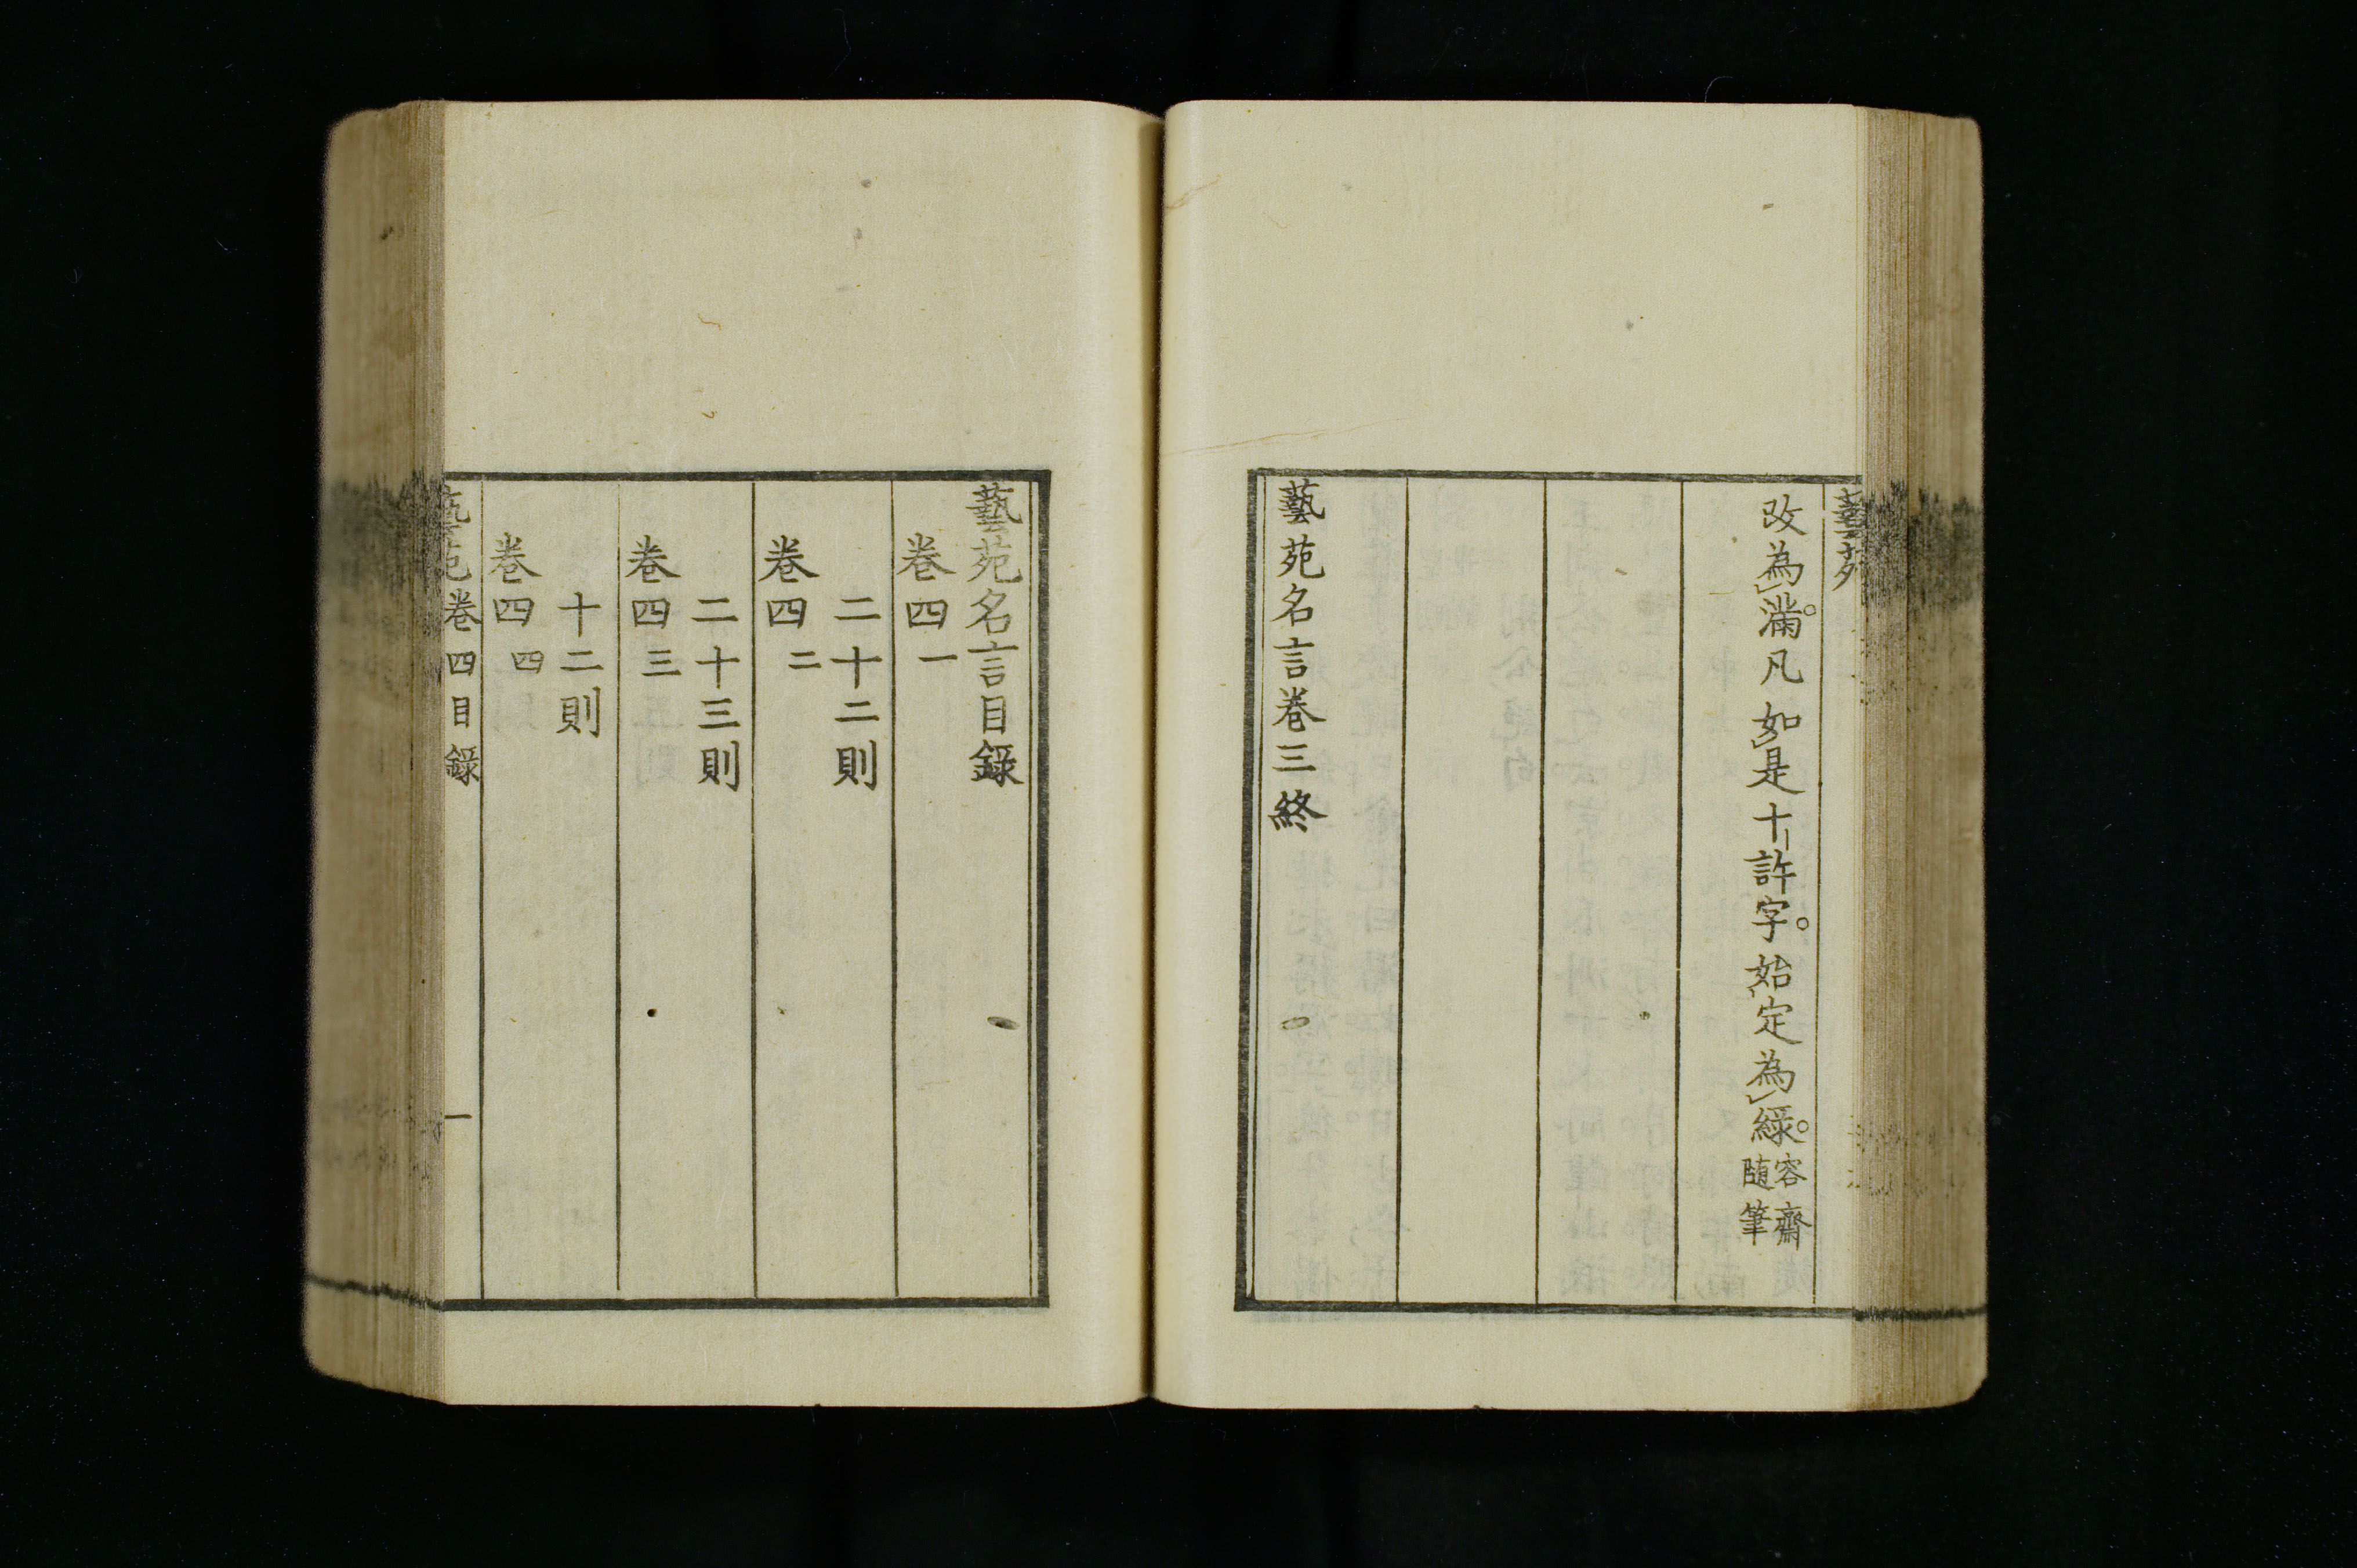 藝苑
改為滿。凡如是十許字。始定為綠。容齋隨筆
藝苑名言卷三終
藝苑名言目錄
卷四一
二十二則
卷四二
二十三則
卷四三
十二則
卷四四
藝苑卷四目錄 一